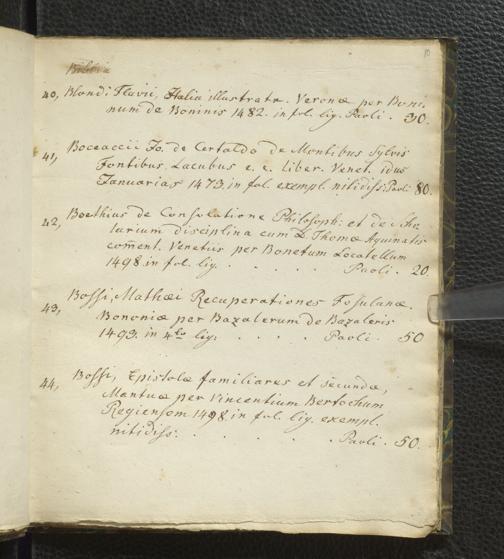 10
40, Blondi Flavii, Italia illustrata. Veronæ per Boni,
num de Boninis 1482. in fol. lig. Paoli. 30.
41, Boccaccii Jo. de Certaldo de Montibus Sylvis
Fontibus Lacubus e. c. liber. Venet. idus
Januarias 1473 in fol. exempl. nitidiss: Paoli 80.
42, Boethius de Consolatione Philosoph: et de Sco,
larium disciplina cum D. Thomæ Aquinatis
com̄ent. Venetiis per Bonetum Locatellum
1498 in fol. lig. . . . . . Paoli. 20.
43, Bossi, Mathæi Recuperationes Fesulanæ.
Bononiæ per Bazalerum de Bazaleris
1493. in 4to lig. . . . . . Paoli. 50
44, Bossi, Epistolæ familiares et secundæ,
Mantuæ per Vincentium Bertochum
Regiensem 1498 in fol. lig. exempl.
nitidiss: . . . . . Paoli. 50.